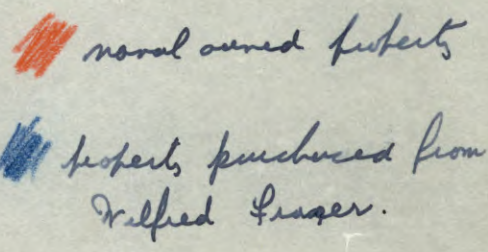 naval owned property
property purchased from
Wilfred Frazer.